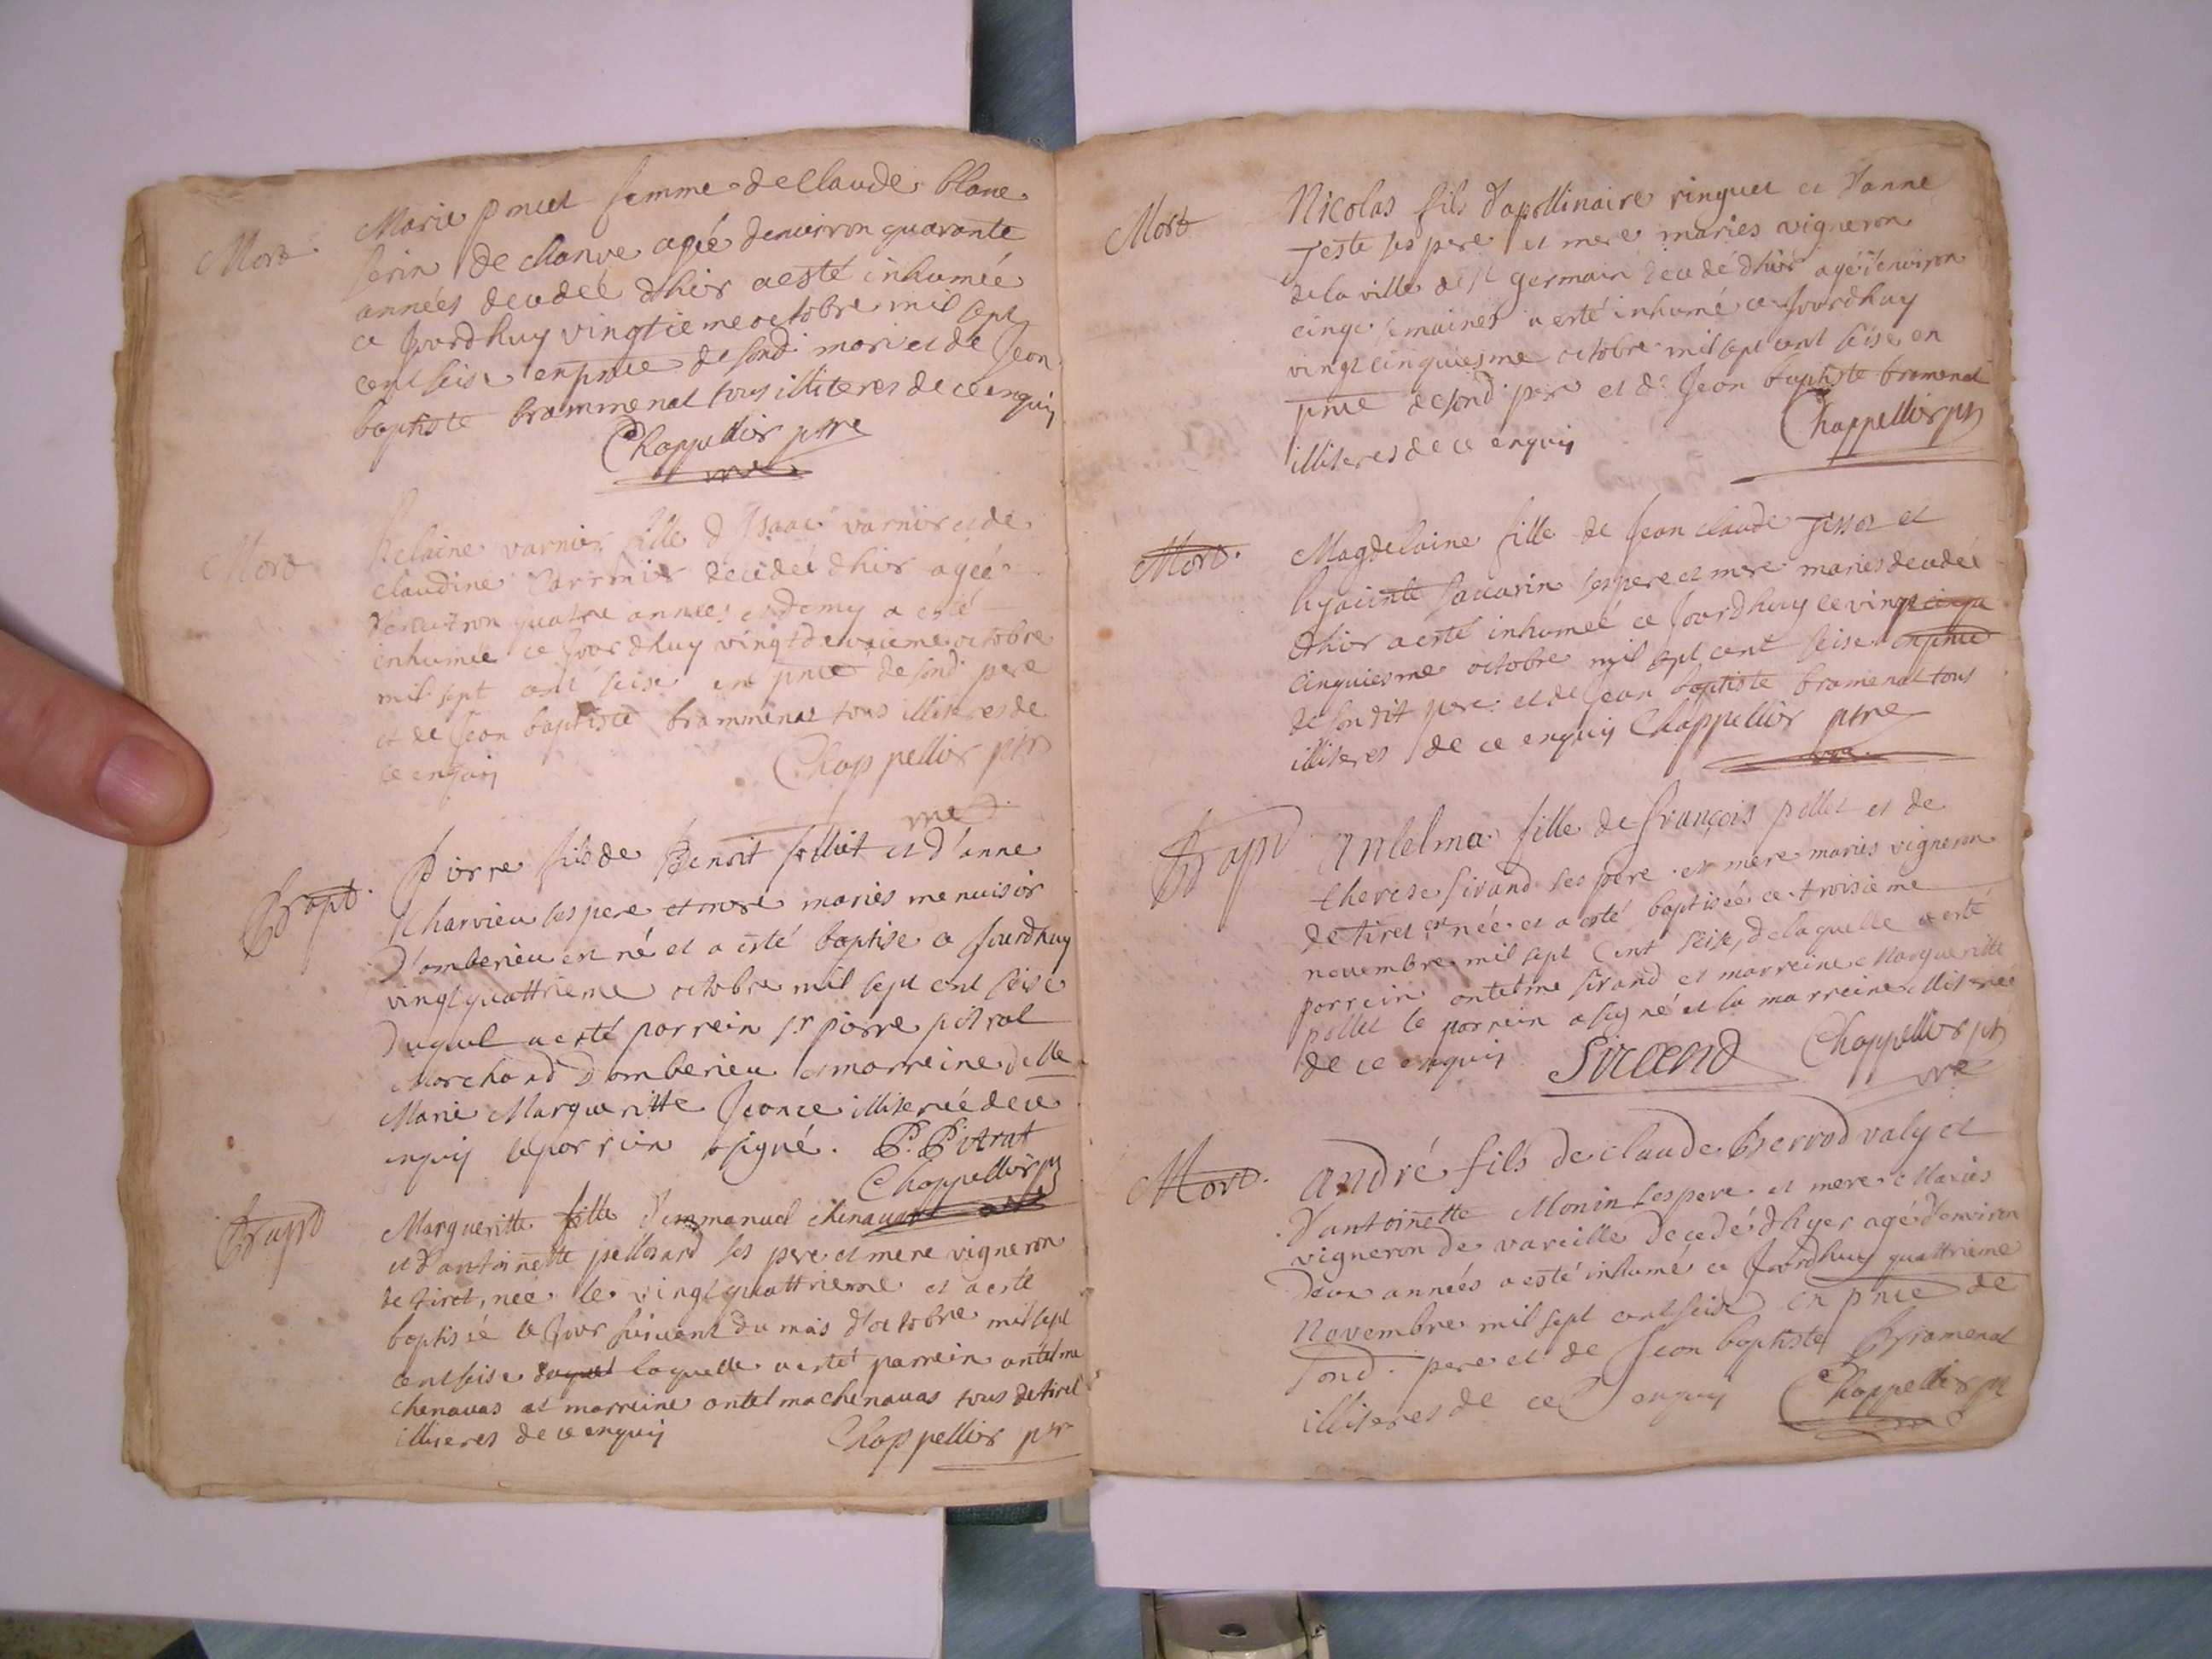 Mort
Marie poncet femme de Claude blanc
serin de chanve agée denuiron quarante
années decedée dhier a esté inhumée
ce Jourdhuy vingtieme octobre mil sept
cent seise en pnce de sond. mari et de Jean
baptiste brammenat tous illiteres de ce enquis
Chappellier ptre
Mort
varnier fille d'Isaac varnier et de
claudine decedée dhier agée
d'enuiron quatre années et demy a esté
inhumée ce Jourdhuy vingt deuxieme octobre
mil sept cent seise en pnce de sond. pere
et de Jean baptiste brammenat tous illiteres de
ce enquis
Chappellier ptre
Bapt.
Pierre fils de Benoit folliet et d'anne
charvieu ses pere et mere mariés menuisier
d'amberieu est né et a esté baptisé ce Jourdhuy
vingt quattrieme octobre mil sept cent seise
duquel a esté parrein sr. pierre pitrat
Marchand d'amberieu et marreine delle
Marie Margueritte Jeance illiterée de ce
enquis le parrein a signé. P. Pitrat
Chappellier ptre
Bapt
Margueritte fille d'emmanuel chenauas
et d'antoinette pellosard ses pere et mere vigneron
de tiret, née le vingt quattrieme et a esté
baptisée le Jour suiuant du mois d'octobre mil sept
cent seise duquel laquelle a esté parrein antelme
chenauas et marreine antelma chenauas tous de tiret
illiteres de ce enquis
Chappellier ptr
Mort
Nicolas fils d'apollinaire ringuet et d'anne
Teste ses pere et mere mariés vigneron
de la ville de st germain decedé dhier agé d'enuiron
cinqe semaines a esté inhumé ce Jourdhuy
vingt cinquiesme octobre mil sept cent seise en
pnce de sond. pere et de Jean baptiste bramenat
illiteres de ce enquis
Chappellier ptr
Mort.
Magdelaine fille de Jean claude Tissot et
hyacinte sauarin ses pere et mere mariés decedée
dhier a esté inhumée ce Jourdhuy ce vingt cinqu
cinquiesme octobre mil sept cent seise en pnce
de son dit pere et de Jean baptiste bramenat tous
illiteres de ce enquis Chappellier ptre
Bapt
Antelma fille de françois pollet et de
therese sirand ses pere et mere mariés vigneron
de tiret est née et a esté baptisée ce troisieme
nouembre mil sept cent seise, de laquelle a esté
parrein antelme sirand et marreine Margueritte
pollet le parrein a signé et la marreine illiterée
de ce enquis Sirand Chappellier ptr
Mort.
André fils de claude Berrod valy et
d'antoinette Monin ses pere et mere Mariés
vigneron de vareille decedé dhyer agé d'enuiron
deux années a esté inhumé ce Jourdhuy quattrieme
Novembre mil sept cent seise en pnce de
sond. pere et de Jean baptiste Bramenat
illiteres de ce enquis
Chappellier ptr